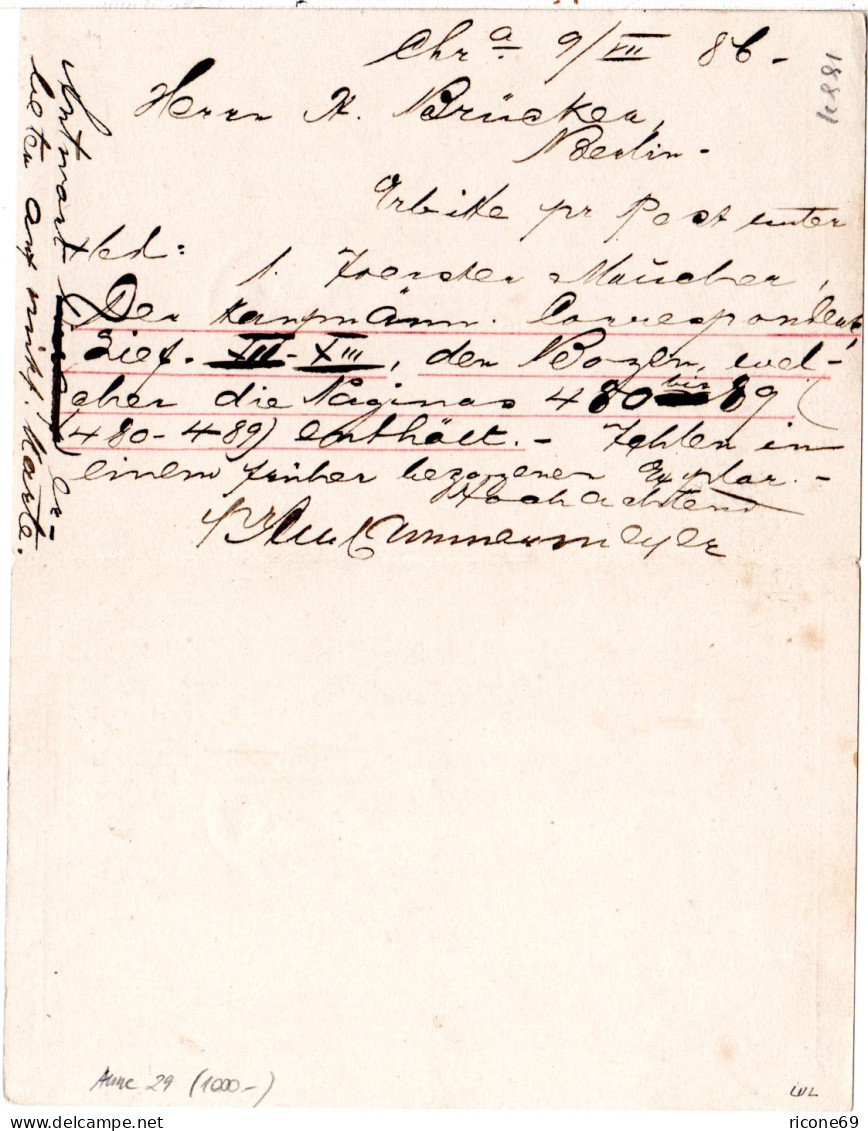 Chr a 9/VII 86.-
Herrn H. Brücker,
Berlin -
Erbitte pr Post unter
Ned:
1. Foerster Maucher,
Der kaufmänn. Correspondent,
Lief. XII-XIII, den Bogen, wel-
cher die Paginas 480 bis 89
(480-489) enthält. - Fehlen in
einem früher bezogenen Explar. -
Hochachtend
pr Alb Cammermeyer
Antwort er-
beten auf mitf. Karte.
1881
(1000-)
29
WL
ricone69